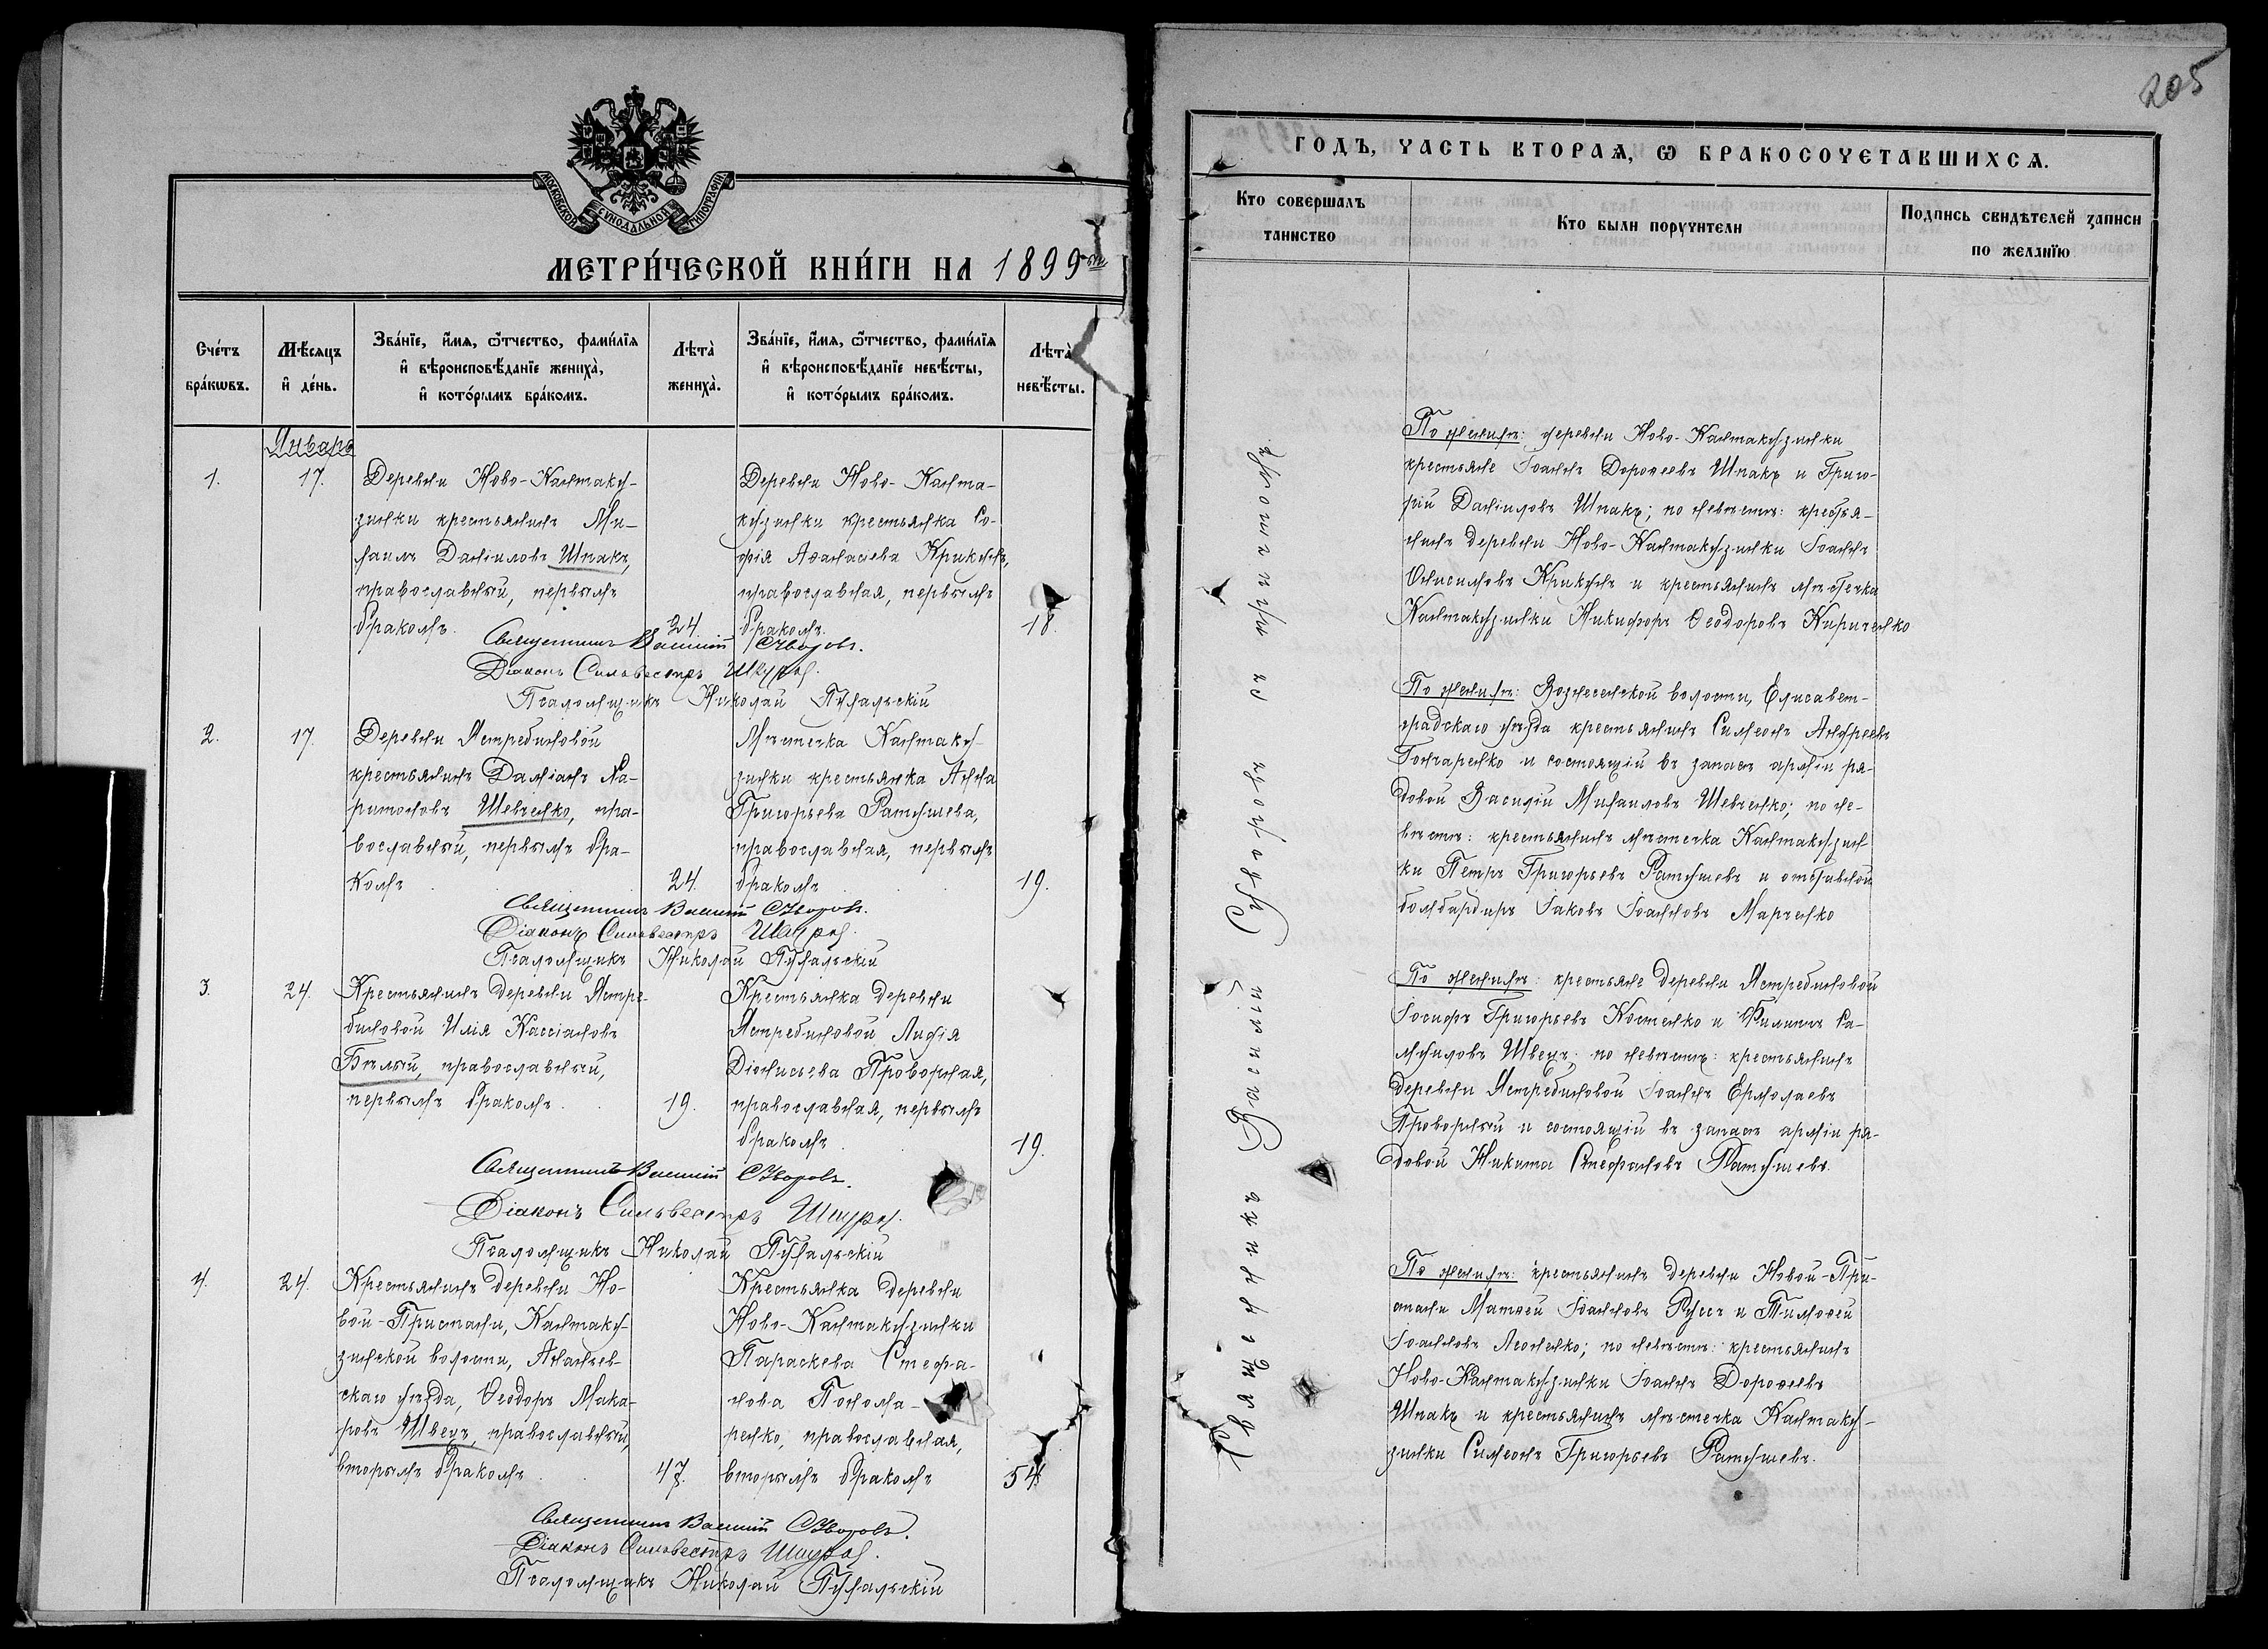 205
МОСКОВСКОЙ СѴНОДАЛЬНОЙ ТИПОГРАФІИ
МЕТРИ́ЧЕСКОЙ КНИ́ГИ НА 1899ый
Сче́тъ бра́кωвъ.
Мѣ́сяцъ и҆ де́нь.
Зва́нїе, и҆́мя, ѻ҆́тчество, фами́лїя
и҆ вѣроисповѣ́данїе жениха̀,
и҆ кото́рымъ бра́комъ.
Лѣта̀ жениха̀.
Зва́нїе, и҆́мя, ѻ҆́тчество, фами́лїя
и҆ вѣроисповѣ́данїе невѣ́сты,
и҆ кото́рымъ бра́комъ.
Лѣта̀ невѣ́сты.
Январь
1.
17.
Деревни Ново-Кантаку-
зинки крестьянинъ Ми-
хаилъ Даніиловъ Шпакъ,
православный, первымъ
бракомъ.
24.
Деревни Ново-Канта-
кузинки крестьянка Со-
фія Аѳанасіева Крикунъ,
православная, первымъ
бракомъ.
18.
Священникъ Василій Суворовъ.
Діаконъ Сильвестръ
Псаломщикъ Николай Пухальскій
2.
17.
Деревни Ястребиновой
крестьянинъ Даміанъ Ха-
ритоновъ Шевченко, пра-
вославный, первымъ бра-
комъ
24.
Мѣстечка Кантаку-
зинки крестьянка Анна
Григорьева Ратушева,
православная, первымъ
бракомъ
19.
Священникъ Василій Суворовъ.
Діаконъ Сильвестръ
Псаломщикъ Николай Пухальскій
3.
24.
Крестьянинъ деревни Ястре-
биновой Илія Кассіановъ
Бѣлый, православный,
первымъ бракомъ
19.
Крестьянка деревни
Ястребиновой Лидія
Діонисьева Проворная,
православная, первымъ
бракомъ
19.
Священникъ Василій Суворовъ.
Діаконъ Сильвестръ
Псаломщикъ Николай Пухальскій
4.
24.
Крестьянинъ деревни Но-
вой-Пристани, Кантаку-
зинской волости, Ананьев-
скаго уѣзда, Ѳеодоръ Мака-
ровъ Швецъ, православный,
вторымъ бракомъ
47.
Крестьянка деревни
Ново-Кантакузинки
Параскева Стефа-
нова Понома-
ренко, православная,
вторымъ бракомъ
54.
Священникъ Василій Суворовъ.
Діаконъ Сильвестръ
Псаломщикъ Николай Пухальскій
ГОДЪ, ЧАСТЬ ВТОРАѦ, Ѡ БРАКОСОЧЕТАВШИХСѦ.
Кто совершалъ таинство
Кто были поручители
Подпись свидѣтелей записи по желанїю
Священникъ Василій Суворовъ съ причтомъ
По женихѣ: деревни Ново-Кантакузинки
крестьяне Іоаннъ Дороѳеевъ Шпакъ и Григо-
рій Даніиловъ Шпакъ; по невѣстѣ: крестья-
нинъ деревни Ново-Кантакузинки Іоаннъ
Онисимовъ Крикунъ и крестьянинъ мѣстечка
Кантакузинки Никифоръ Ѳеодоровъ Кириченко
По женихѣ: Вознесенской волости, Елисавет-
градскаго уѣзда крестьянинъ Симеонъ Андреевъ
Гончаренко и состоящій въ запасѣ арміи ря-
довой Василій Михаиловъ Шевченко; по не-
вѣстѣ: крестьянинъ мѣстечка Кантакузин
ки Петръ Григорьевъ Ратушевъ и отставной
бомбардиръ Іаковъ Іоанновъ Марченко
По женихѣ: крестьяне деревни Ястребиновой
Іосифъ Григорьевъ Костенко и Филиппъ Са-
муиловъ Швецъ; по невѣстѣ: крестьянинъ
деревни Ястребиновой Іоаннъ Ермолаевъ
Проворный и состоящій въ запасѣ арміи ря-
довой Никита Стефановъ Ратушевъ.
По женихѣ: крестьянинъ деревни Новой-При-
стани Матѳей Іоанновъ Руссъ и Тимоѳей
Іоанновъ Леоненко; по невѣстѣ: крестьянинъ
Ново-Кантакузинки Іоаннъ Дороѳеевъ
Шпакъ и крестьянинъ мѣстечка Кантаку-
зинки Симеонъ Григорьевъ Ратушевъ.